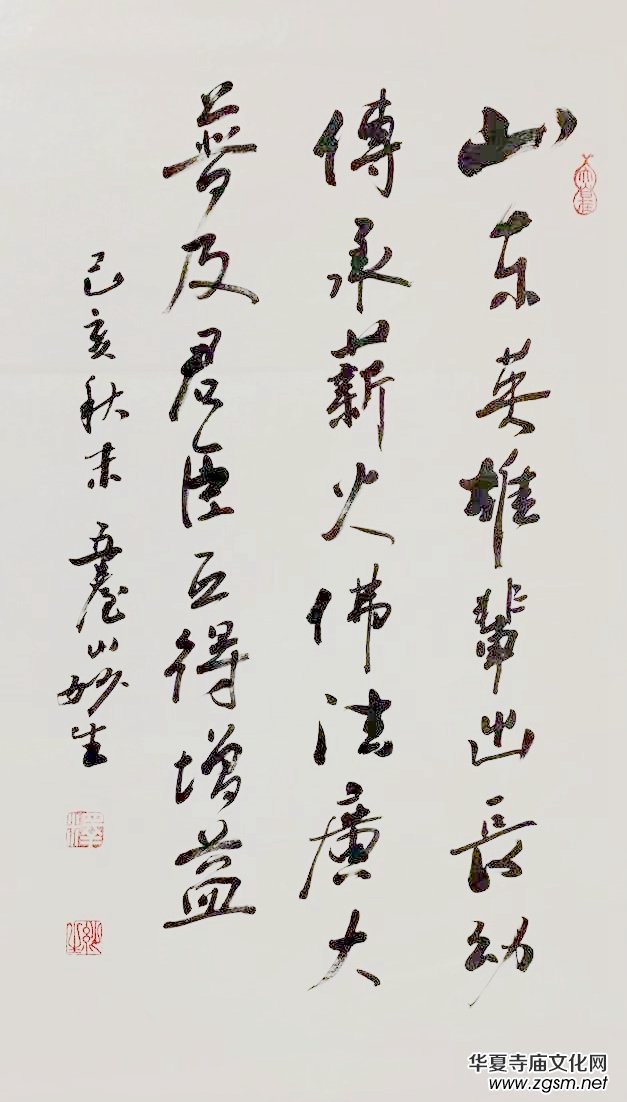 山东英雄辈出長幼
傳承薪火佛法廣大
普及君臣互得增益
己亥秋末 五臺山妙生
华夏寺庙文化网
www.zgsm.net